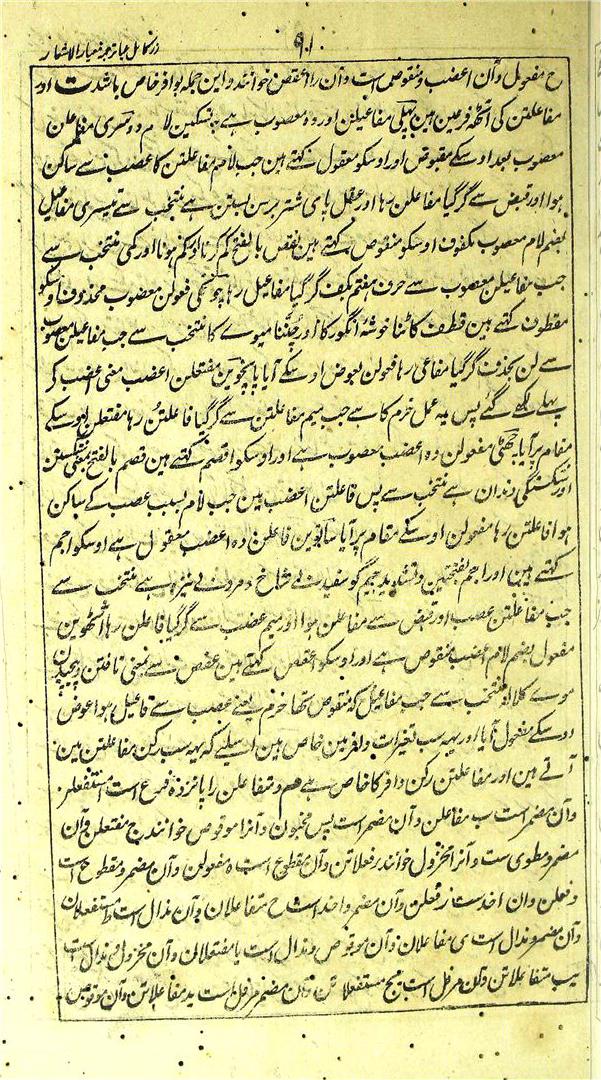 زر کامل عیار ترجمہ معیار الاشعار
۹۱
ح مفعول وآن اعضب و منقوص است وآن را اعقص خوانند و این جملہ بوافر خاص باشد ت اور
مفاعلتن کی آٹھہ فرعین ہین پہلی مفاعیلن اور وہ معصوب ہے بہ تسکین لام دوسری مفاعلن
معصوب بعد اوسکے مقبوض اور اوسکو معقول کہتے ہین جب لام مفاعلتن کا عصب سے ساکن
ہوا اور قبض سے گر گیا مفاعلن رہا اور عقل پای شتر برسن بستن ہے منتخب سے تیسری مفاعیل
بضم لام معصوب مکفوف اوسکو منقوص کہتے ہین نقص بالفتح کم کرنا اور کم ہونا اور کمی منتخب سے
جب مفاعیلن معصوب سے حرف ہفتم بکف گر گیا مفاعیل رہا چوتھی فعولن معصوب محذوف اوسکو
مقطوف کہتے ہین قطف کاٹنا خوشہ انگور کا اور چننا میوے کا منتخب سے جب مفاعیلن معصوب
سے لن بحذف گر گیا مفاعی رہا فعولن بعوض اوسکے آیا پانچوین مفتعلن اعضب معنی اعضب کر
پہلے لکھے گئے پس یہ عمل خرم کا سے جب میم مفاعلتن سے گر گیا فاعلتن رہا مفتعلن اوسکے
مقام پر آیا چھٹی مفعولن وہ اعضب معصوب ہے اور اوسکو اقصم کہتے ہین قصم بالفتح بمعنی شکستن
اور شکستگی دندان ہے منتخب سے پس فاعلتن اعضب ہین جب لام بسبب عصب کے ساکن
ہوا فاعلتن رہا مفعولن اوسکے مقام پر آیا ساتوین فاعلن وہ اعضب معقول ہے اوسکو اجم
کہتے ہین اور اجم بفتحتین و تشدید جیم گوسفند بے شاخ و مرد بے نیزہ ہے منتخب سے
جب مفاعلتن عصب اور قبض سے مفاعلن ہوا اور میم عضب سے گر گیا فاعلن رہا آٹھوین
مفعول بضم لام اعضب منقوص ہے اور اوسکو اعقص کہتے ہین عقص سے بمعنی تافتن و پیچیدن
موے کلالہ منتخب سے جب مفاعیل کہ منقوص تھا خرم یعنے عضب سے فاعیل ہوا عوض
اوسکے مفعول آیا اور یہہ سب تغیرات وافر مین خاص ہین اسلیے کہ یہہ سب رکن مفاعلتن مین
آتے ہین اور مفاعلتن رکن وافر کا خاص ہے ھم و متفاعلن را پانزدہ فرع است ا مستفعلن
وآن مضمر است ب مفاعلن وآن مضمر است پس مخبون وآنرا موقوص خوانند ج مفتعلن وآن
مضمر و مطوی ست وآنرا مخزول خوانند د فعلاتن وآن مقطوع است ہ مفعولن وآن مضمر و مقطوع است
و فعلن وان احذ ست ز فعلن وآن مضمر و احذ است ح متفاعلان وآن مذال است ط مستفعلان
وآن مضمر و مذال است ی مفاعلان وآن موقوص و مذال است یا مفتعلان وآن مخزول و مذال است
یب متفاعلاتن وآن مرفل است یج مستفعلاتن وآن مضمر مرفل است ید مفاعلاتن وآن موقوص